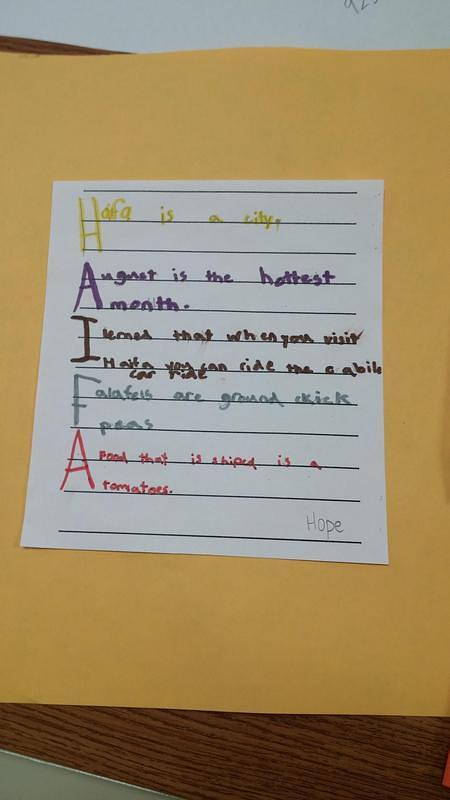 Haifa is a city.
August is the hottest
month.
I lerned that when you visit
Haifa you can ride the cabile
car ride
Falafels are ground chick
peas
A Food that is shiped is a
tomatoes.
Hope